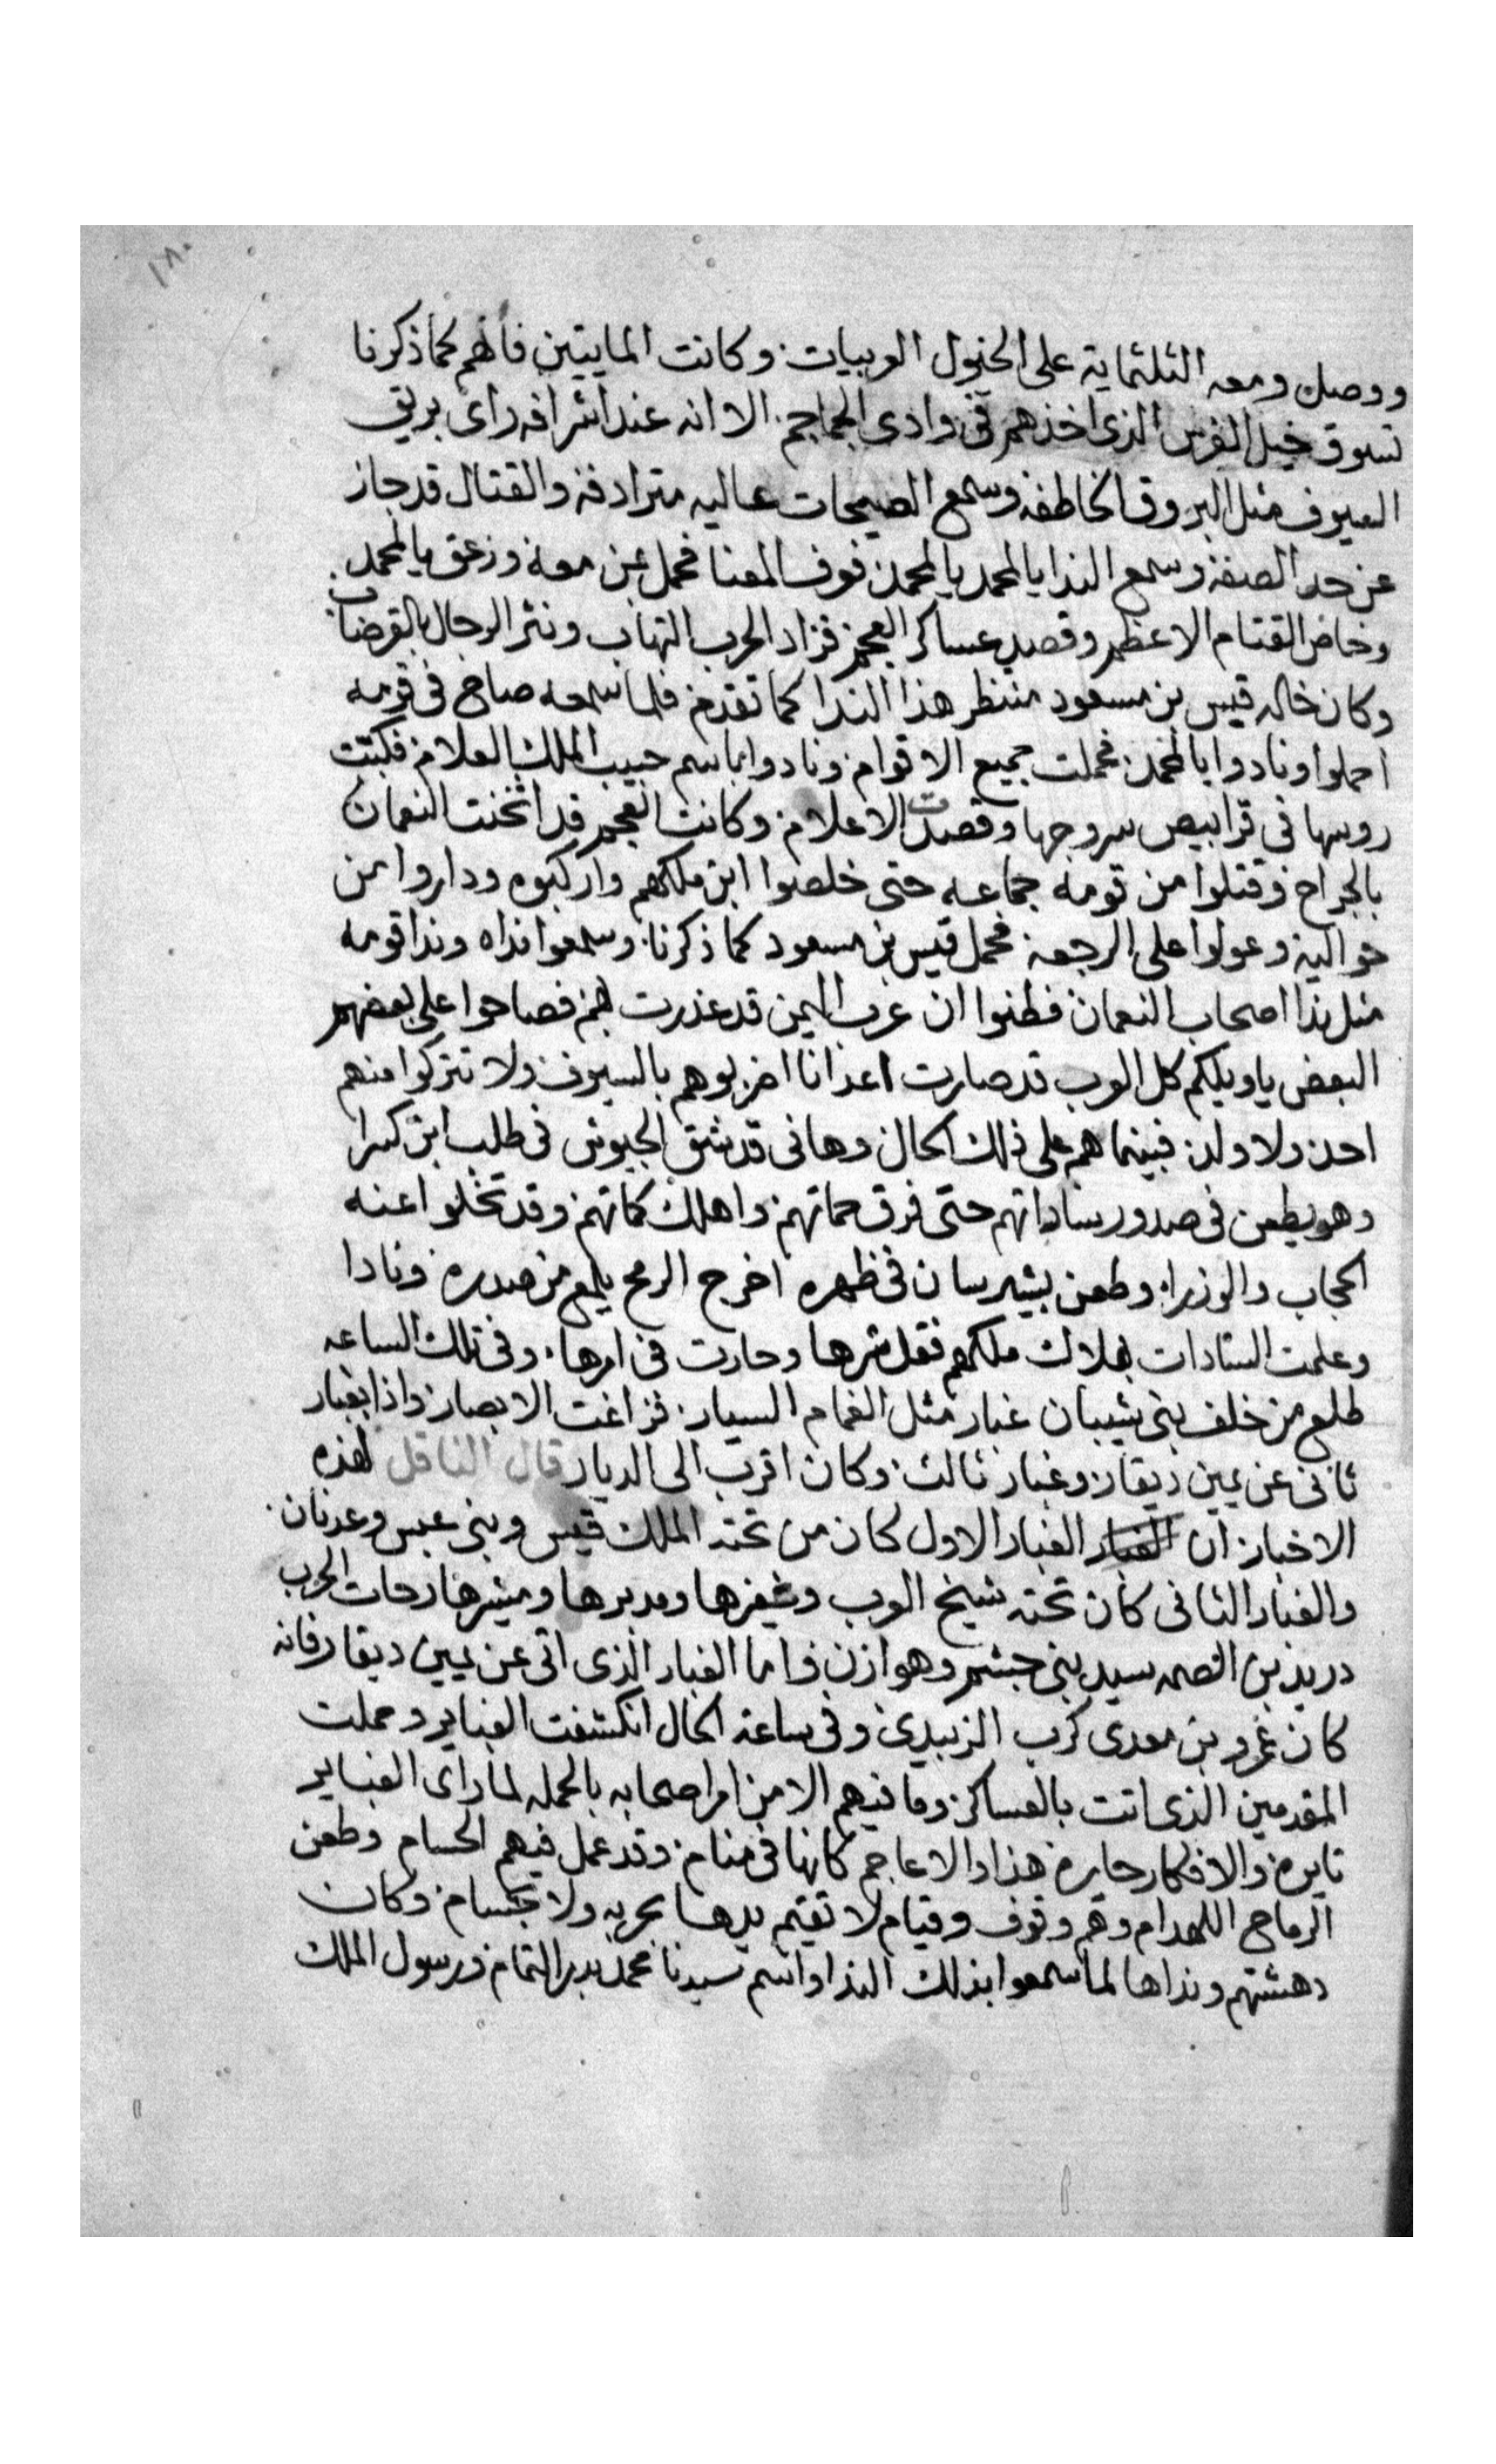 ١٨٠
ووصل ومعه الثلثماية على الخيول العربيات وكانت المايتين فانهم كما ذكرنا
تسوق خيل الفرس الذى اخذهم فى وادى الجماجم الا انه عند اشرافه راى بريق
السيوف مثل البروق الخاطفه وسمع الضجات عاليه مترادفه والقتال قد جاز
عن حد الصفه وسمع الندا يالمحمد يالمحمد فعرف المعنا فحمل بمن معه وزعق يالمحمد
وخاض القتام الاعظم وقصد عساكر العجم فزاد الحرب التهاب ونثر الرجال بالقرضاب
وكان خاله قيس بن مسعود منتظر هذا الندا كما تقدم فلما سمعه صاح فى قومه
احملوا ونادوا يالمحمد فحملت جميع الاقوام ونادوا باسم حبيب الملك العلام فكبتت
روسها فى قرابيص سروجها وقصدت الاعلام وكانت العجم قد اثخنت النعمان
بالجراح وقتلوا من قومه جماعه حتى خلصوا ابن ملكهم واركبوه وداروا بمن
حواليه وعولوا على الرجعه فحمل قيس بن مسعود كما ذكرنا وسمعوا نداه وندا قومه
مثل ندا اصحاب النعمان فظنوا ان عرب اليمن قد غدرت بهم فصاحوا على بعضهم
البعض ياويلكم كل العرب قد صارت اعدانا اضربوهم بالسيوف ولا تتركوا منهم
احد ولا ولد فبينما هم على ذلك الحال وهانى قد شق الجيوش فى طلب ابن كسرا
وهو يطعن فى صدور ساداتهم حتى فرق حماتهم واهلك كماتهم وقد تخلوا عنه
الحجاب والوزرا وطعن بشيرسان فى ظهره اخرج الرمح يلمع من صدره ونادا
وعلمت السادات بهلاك ملكهم فقل شرها وحارت فى امرها وفى تلك الساعه
طلع من خلف بنى شيبان غبار مثل الغمام السيار فزاغت الابصار واذا بغبار
ثانى عن يمين ذيقار وغبار ثالث وكان اقرب الى الديار قال الناقل لهذه
الاخبار ان الغبار الغبار الاول كان من تحته الملك قيس وبنى عبس وعدنان
والغبار الثانى كان تحته شيخ العرب وغفرها ومدبرها ومشيرها رحات الحرب
دريد بن الصمه سيد بنى جشم وهوازن واما الغبار الذى اتى عن يمين ديقار فانه
كان عمرو بن معدى كرب الزبيدى وفى ساعة الحال انكشفت الغباير وحملت
المقدمين الذى اتت بالعساكر وما فيهم الا من امر اصحابه بالحمله لما راى الغباير
تايره والافكار حايره هذا والاعاجم كانها فى منام وقد عمل فيهم الحسام وطعن
الرماح اللهدام وهم وقوف وقيام لا تقيم يدها بحربه ولا بحسام وكان
دهشتهم ونداها لما سمعوا بذلك الندا واسم سيدنا محمد بدر التمام ورسول الملك